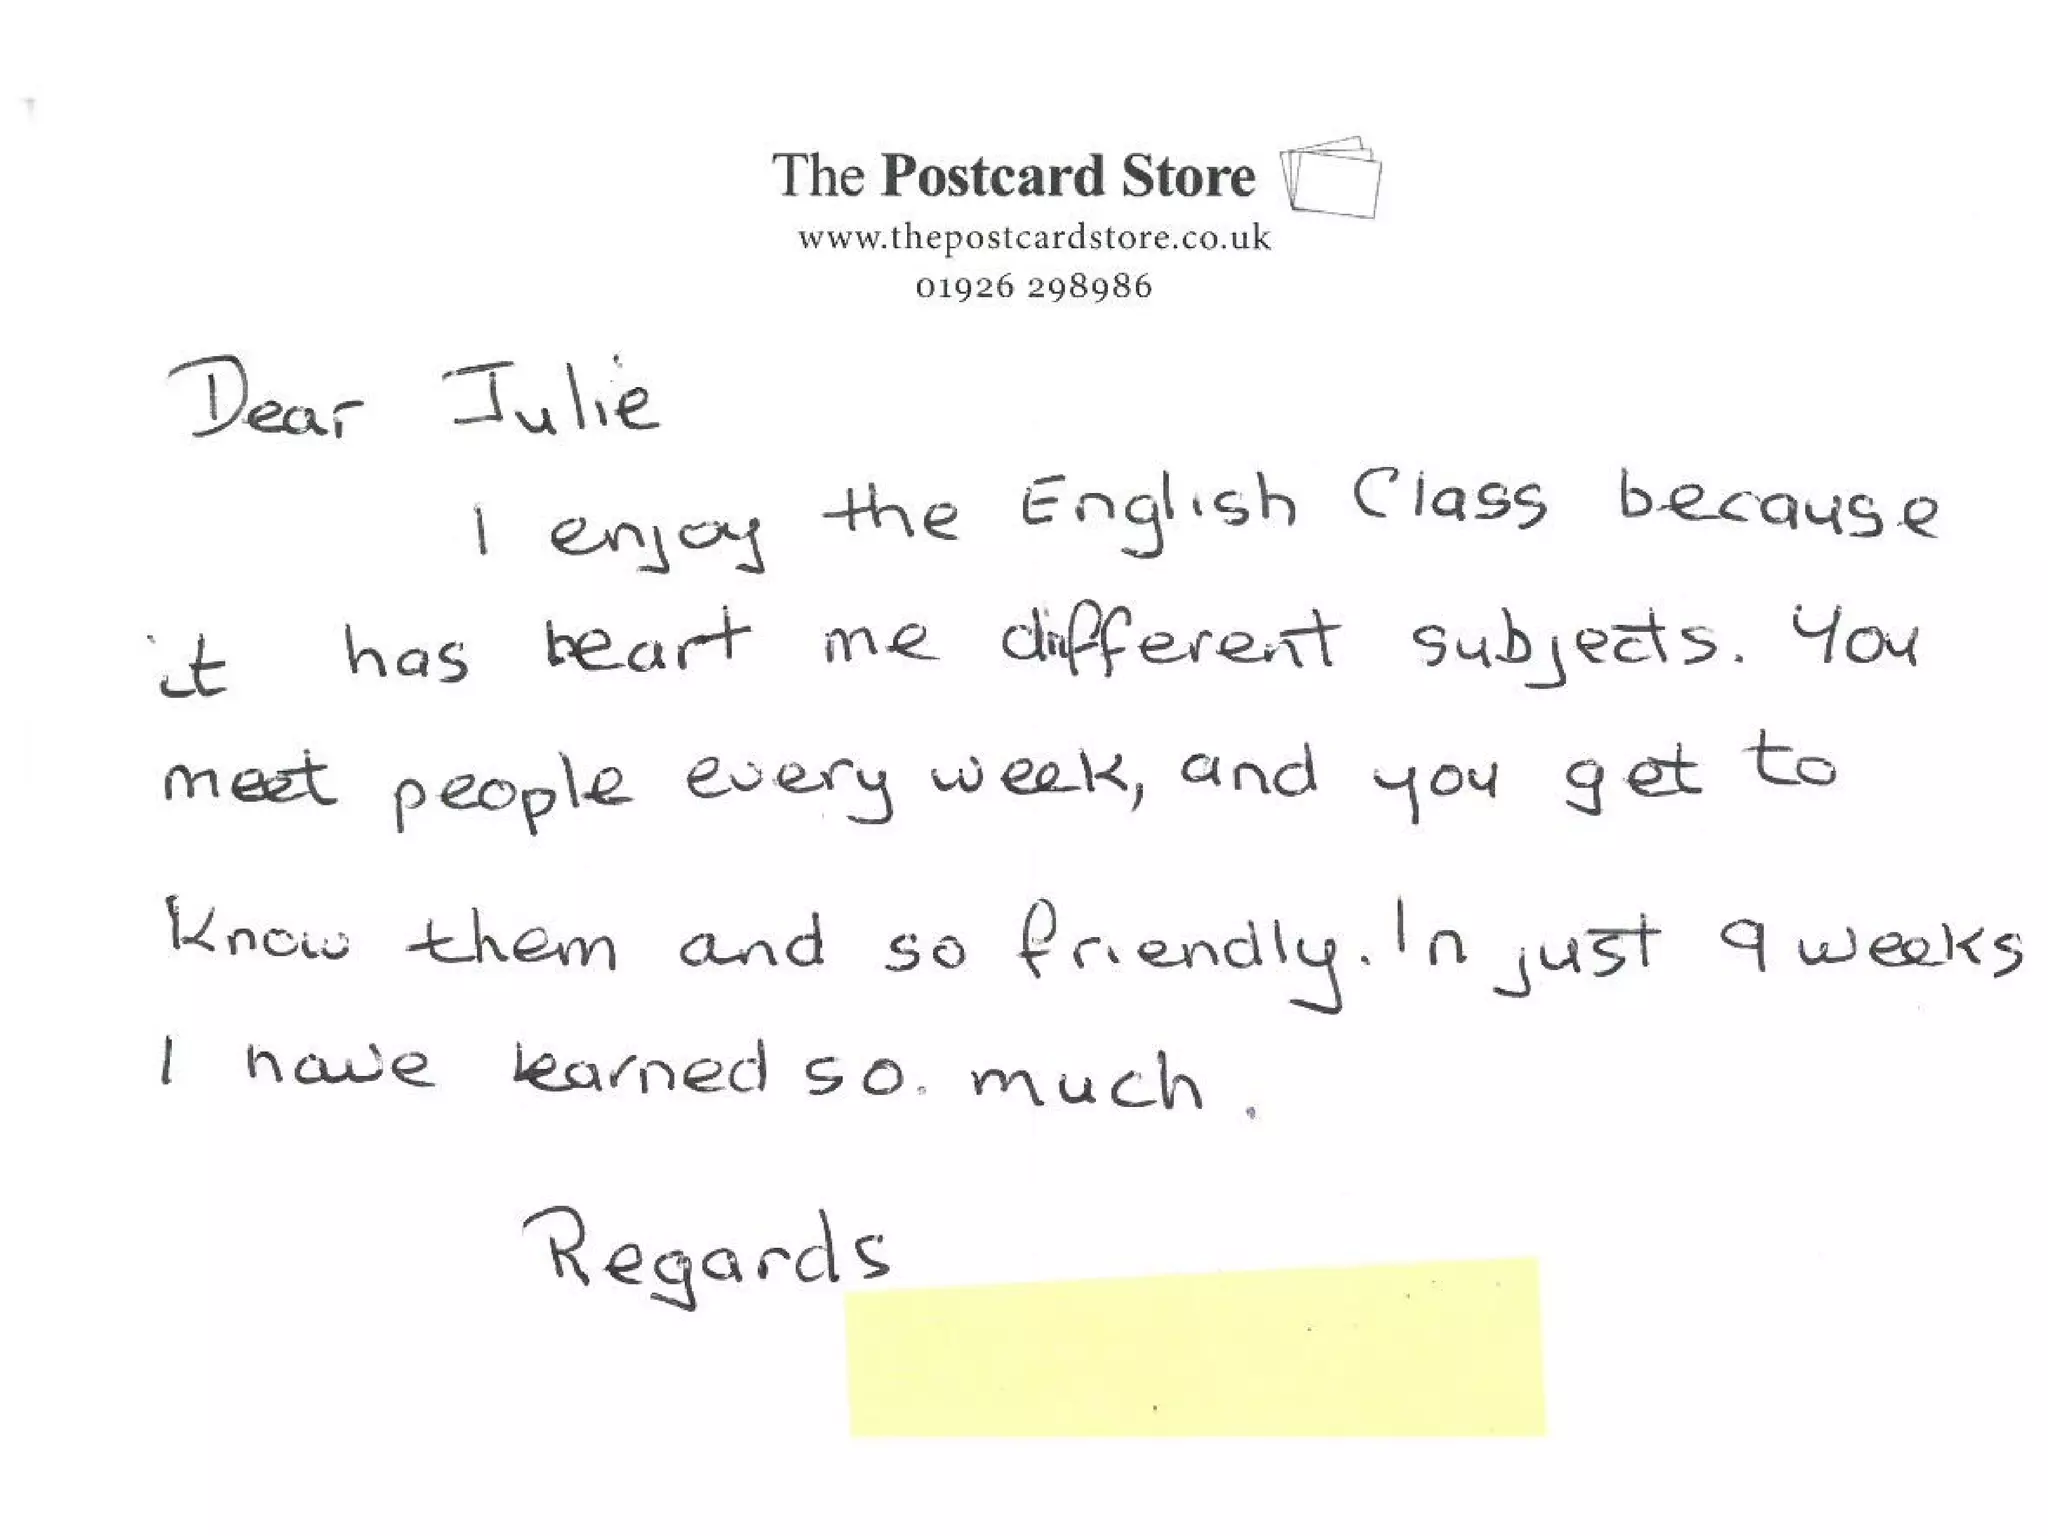 The Postcard Store
www.thepostcardstore.co.uk
01926 298986
Dear Julie
I enjoy the English Class because
it has teart me different subjects. You
meet people every week, and you get to
Know them and so friendly. In just 9 weeks
I have learned so. much.
Regards